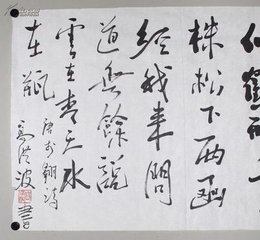 鶴
株松下兩函
經我來問
道無餘說
雲在青天水
在瓶
唐李翱詩
洪波書